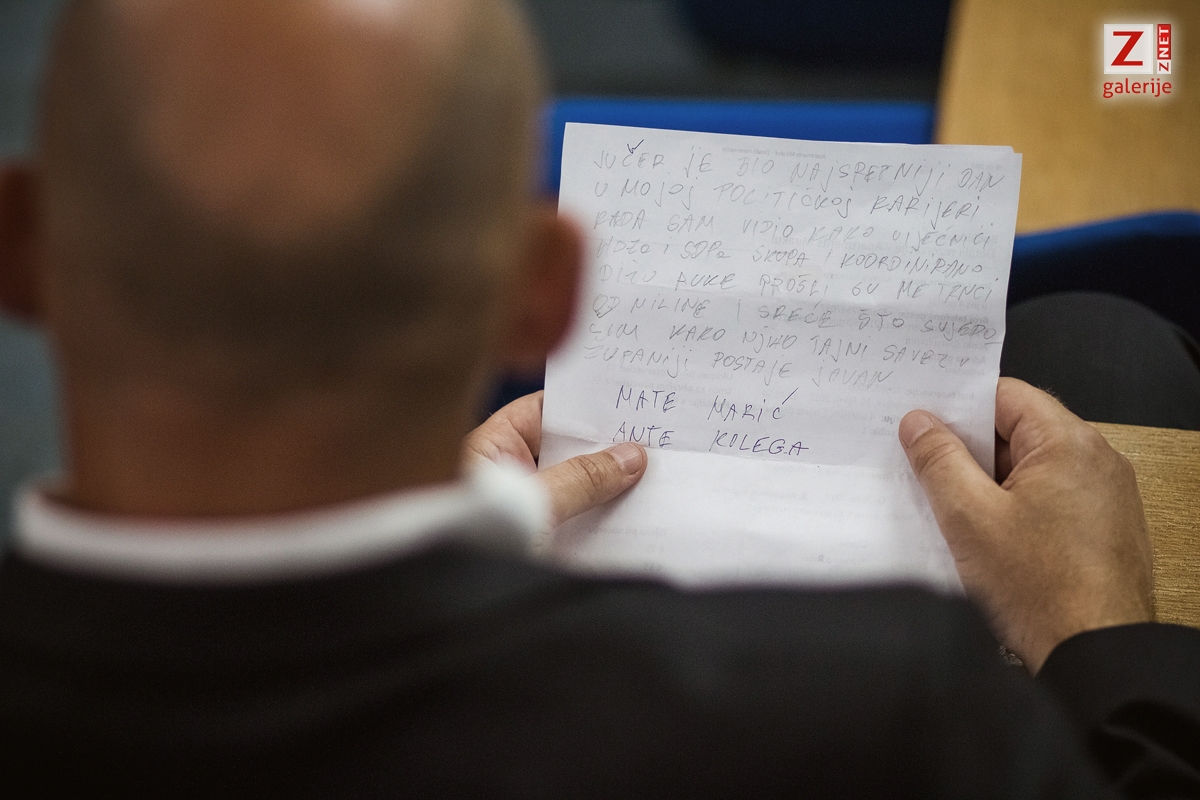 JUČER JE BIO NAJSRETNIJI DAN
U MOJOJ POLITIČKOJ KARIJERI
KADA SAM VIDIO KAKO VIJEĆNICI
HDZa i SDPa SKUPA I KOORDINIRANO
DIŽU RUKE PROŠLI SU ME TRNCI
OD MILINE I SREĆE ŠTO SVJEDO
ČIM KAKO NJIHO TAJNI SAVEZ U
ŽUPANIJI POSTAJE JAVAN
MATE MARIĆ
ANTE KOLEGA
Z ZNET
galerije